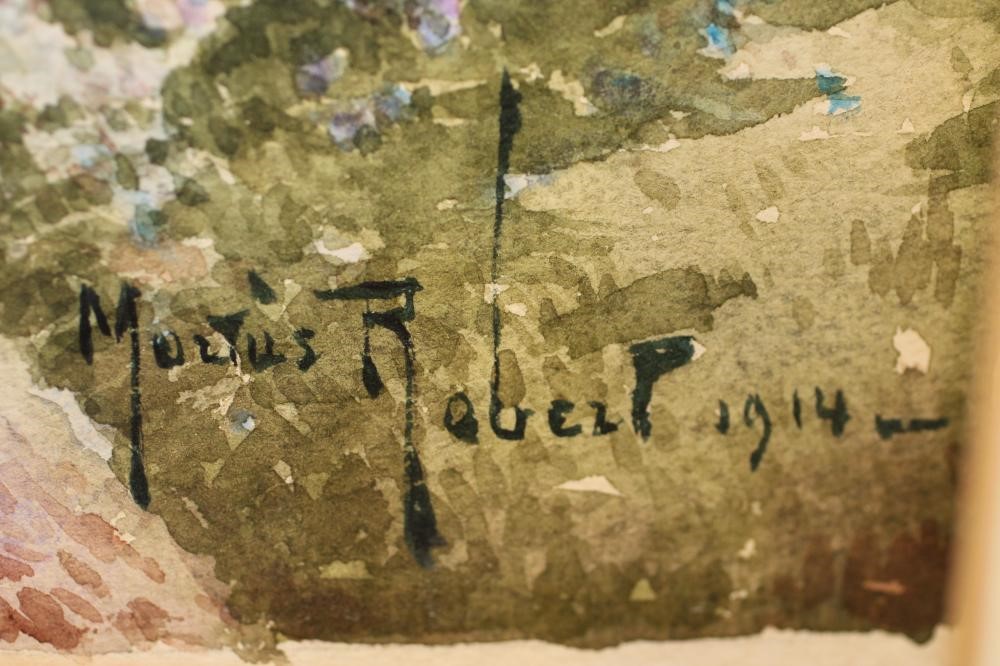 Marius Robert 1914